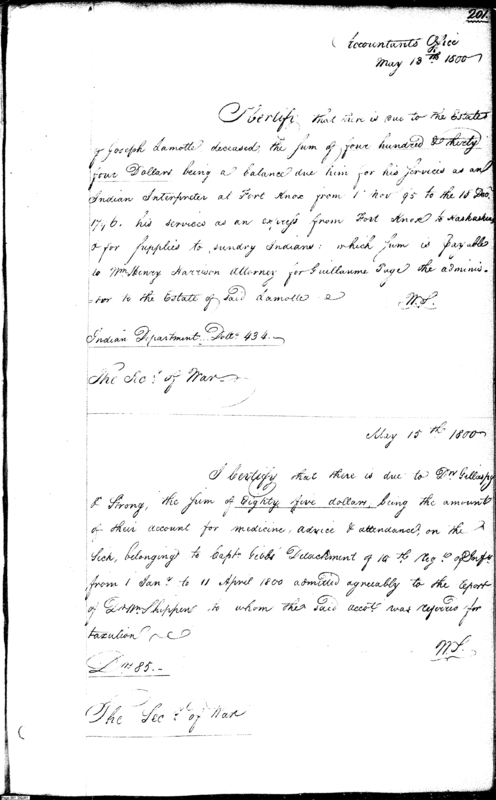 201
Accountants Office
May 13th 1800
I Certify that there is due to the Estate
of Joseph Lamotte deceased the Sum of four hundred & thirty
four Dollars being a balance due him for his Services as an
Indian Interpreter at Fort Knox from 1 Nov 95 to the 15 Decr
1796. his services as an express from Fort Knox to Kaskaskias
& for supplies to sundry Indians: which sum is payable
to Wm Henry Harrison Attorney for Guillaume Page the adminis-
-tor to the Estate of said Lamotte
W.S.
Indian Department Dolls 434.
The Secy of War
May 15th 1800
I Certify that there is due to Drs Gillaspy
& Strong, the sum of Eighty five dollars, being the amount
of their account for medicine, advice & attendance, on the
Sick, belonging to Capt Gibbs Detachment of 16th Regt of Infy
from 1 Jany to 11 April 1800 admitted agreeably to the report
of Dr Wm Shippen to whom the said accot was referred for
taxation
W.S.
Drs 85.-
The Secy of War